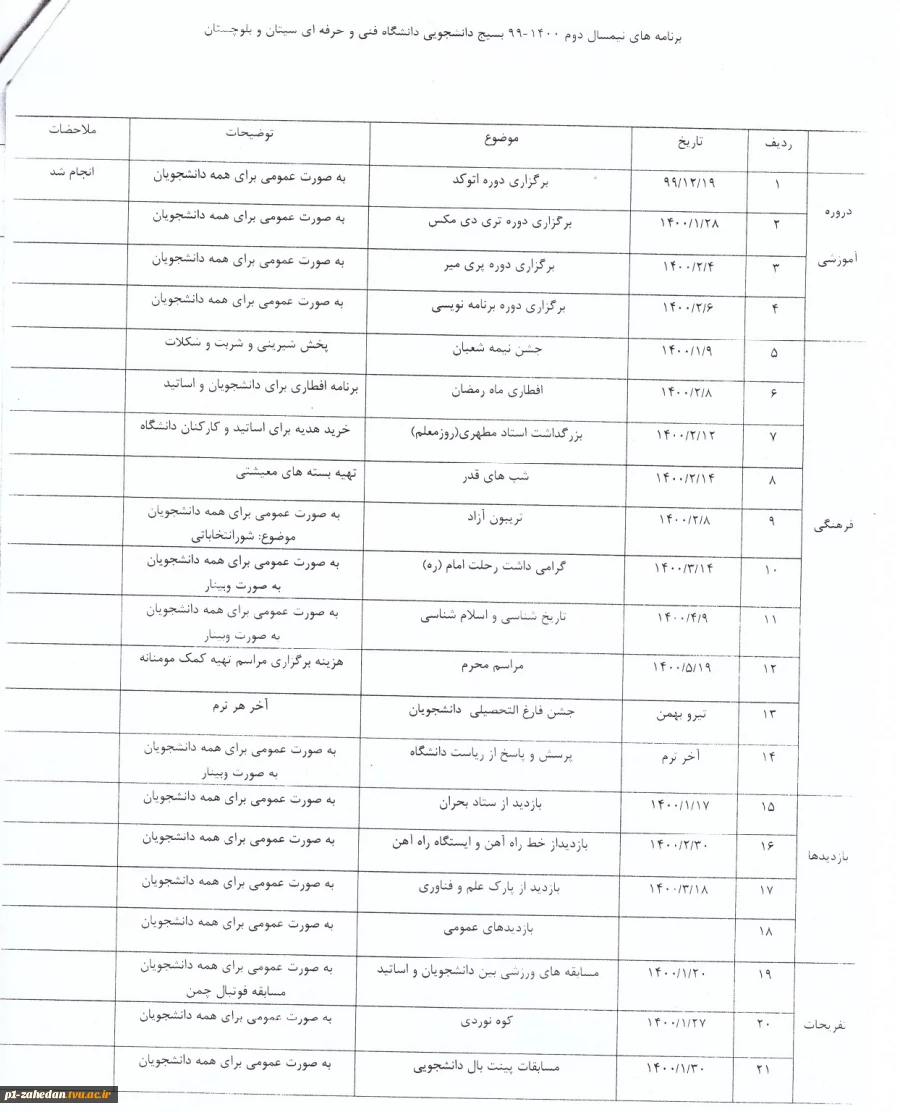 برنامه های نیمسال دوم ۱۴۰۰-۹۹ بسیج دانشجویی دانشگاه فنی و حرفه ای سیتان و بلوچستان
ردیف تاریخ موضوع توضیحات ملاحضات
دروره آموزشی
۱ ۹۹/۱۲/۱۹ برگزاری دوره اتوکد به صورت عمومی برای همه دانشجویان انجام شد
۲ ۱۴۰۰/۱/۲۸ برگزاری دوره تری دی مکس به صورت عمومی برای همه دانشجویان
۳ ۱۴۰۰/۲/۴ برگزاری دوره پری میر به صورت عمومی برای همه دانشجویان
۴ ۱۴۰۰/۲/۶ برگزاری دوره برنامه نویسی به صورت عمومی برای همه دانشجویان
فرهنگی
۵ ۱۴۰۰/۱/۹ جشن نیمه شعبان پخش شیرینی و شربت و شکلات
۶ ۱۴۰۰/۲/۸ افطاری ماه رمضان برنامه افطاری برای دانشجویان و اساتید
۷ ۱۴۰۰/۲/۱۲ بزرگداشت استاد مطهری(روزمعلم) خرید هدیه برای اساتید و کارکنان دانشگاه
۸ ۱۴۰۰/۲/۱۴ شب های قدر تهیه بسته های معیشتی
۹ ۱۴۰۰/۲/۸ تریبون آزاد به صورت عمومی برای همه دانشجویان
موضوع: شورانتخاباتی
۱۰ ۱۴۰۰/۳/۱۴ گرامی داشت رحلت امام (ره) به صورت عمومی برای همه دانشجویان
به صورت وبینار
۱۱ ۱۴۰۰/۴/۹ تاریخ شناسی و اسلام شناسی به صورت عمومی برای همه دانشجویان
به صورت وبینار
۱۲ ۱۴۰۰/۵/۱۹ مراسم محرم هزینه برگزاری مراسم تهیه کمک مومنانه
۱۳ تیرو بهمن جشن فارغ التحصیلی دانشجویان آخر هر ترم
۱۴ آخر ترم پرسش و پاسخ از ریاست دانشگاه به صورت عمومی برای همه دانشجویان
به صورت وبینار
بازدیدها
۱۵ ۱۴۰۰/۱/۱۷ بازدید از ستاد بحران به صورت عمومی برای همه دانشجویان
۱۶ ۱۴۰۰/۲/۳۰ بازدیداز خط راه آهن و ایستگاه راه آهن به صورت عمومی برای همه دانشجویان
۱۷ ۱۴۰۰/۳/۱۸ بازدید از پارک علم و فناوری به صورت عمومی برای همه دانشجویان
۱۸ بازدیدهای عمومی به صورت عمومی برای همه دانشجویان
تفریحات
۱۹ ۱۴۰۰/۱/۲۰ مسابقه های ورزشی بین دانشجویان و اساتید به صورت عمومی برای همه دانشجویان
مسابقه فوتبال چمن
۲۰ ۱۴۰۰/۱/۲۷ کوه نوردی به صورت عمومی برای همه دانشجویان
۲۱ ۱۴۰۰/۱/۳۰ مسابقات پینت بال دانشجویی به صورت عمومی برای همه دانشجویان
p1-zahedan.tvu.ac.ir